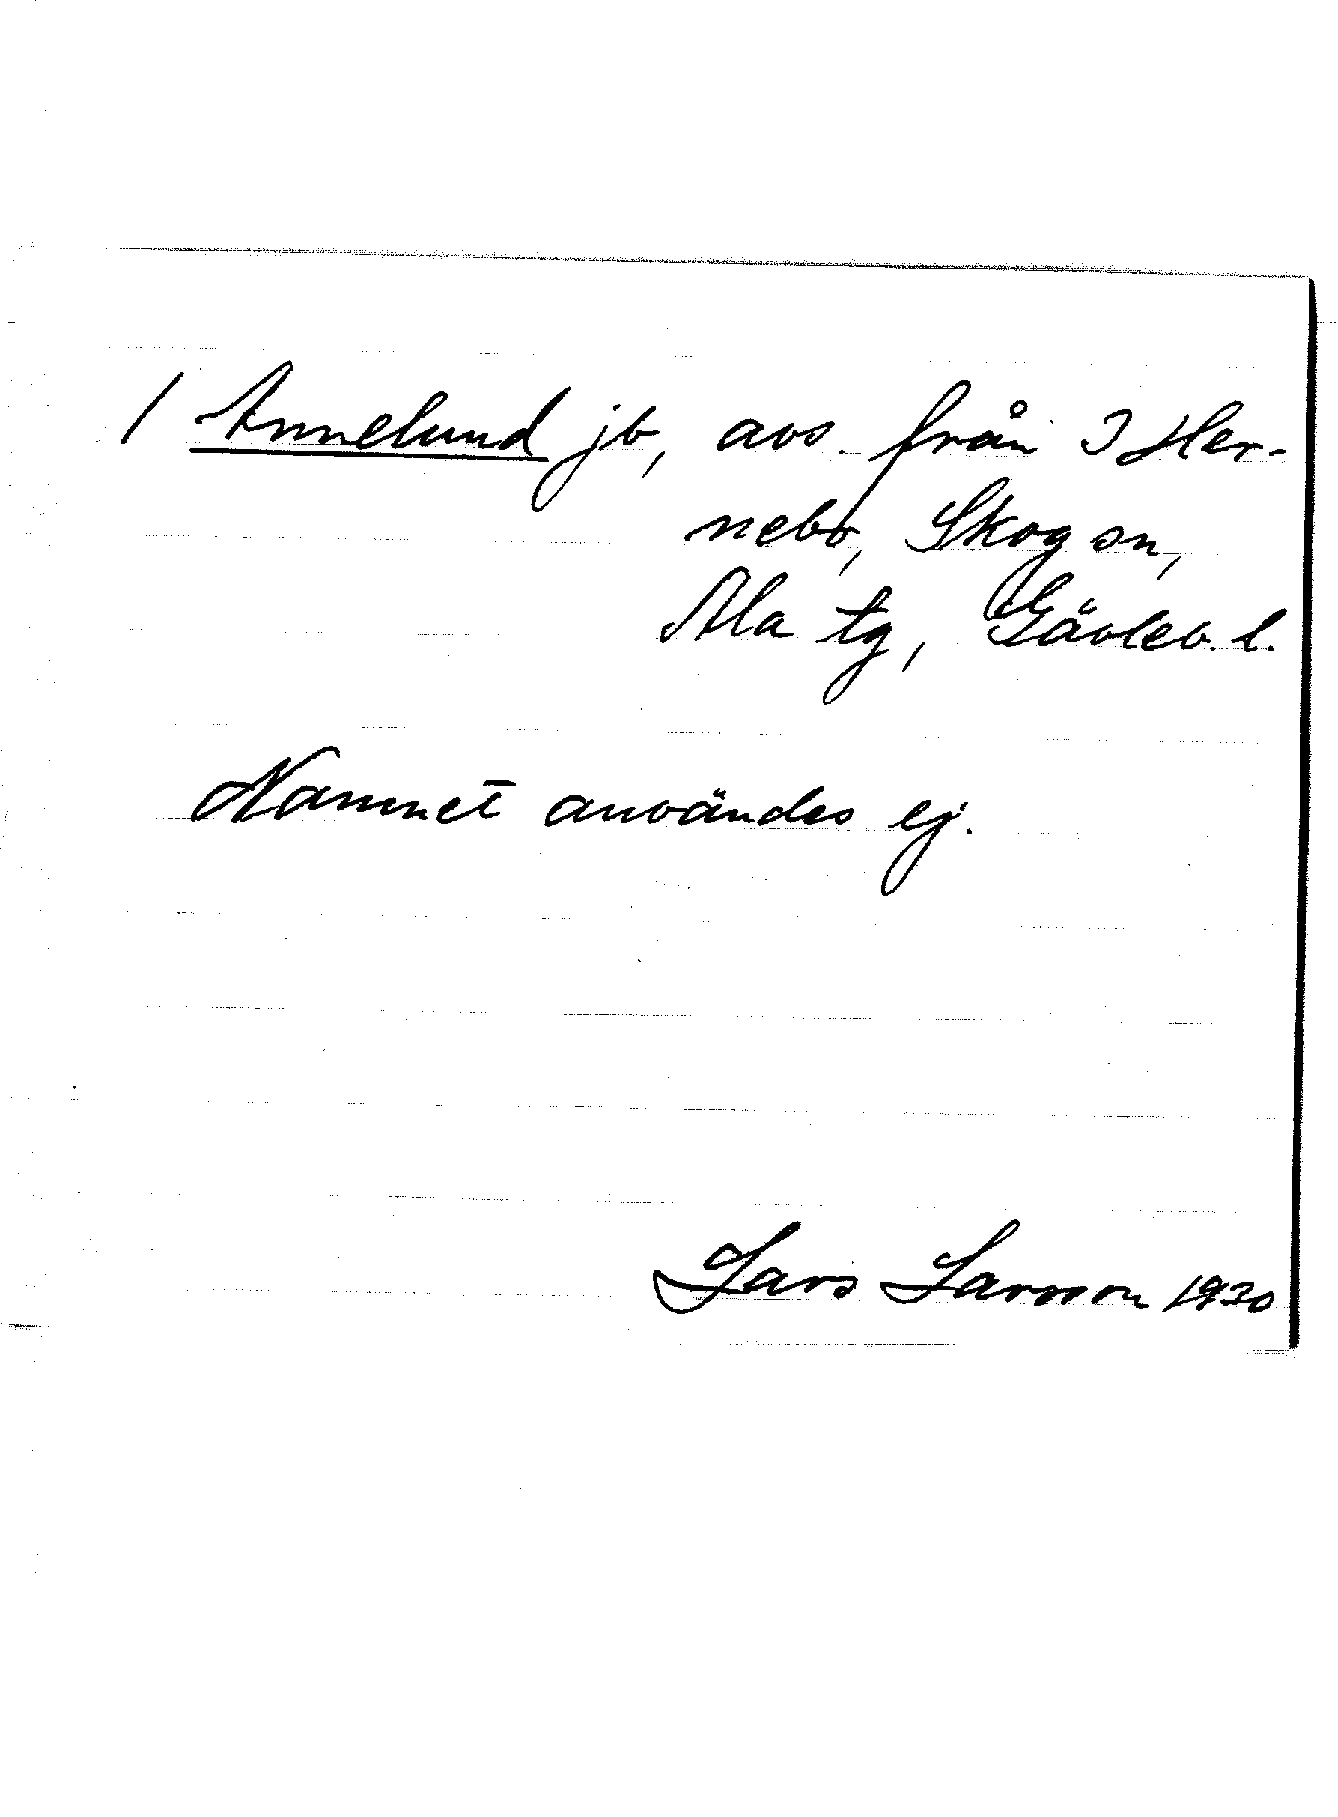 / Annelund jb, avs. från J Her-
nebo, Skog sn,
Ala tg, Gävleb. l.
Namnet användes ej.
Lars Larsson 1930